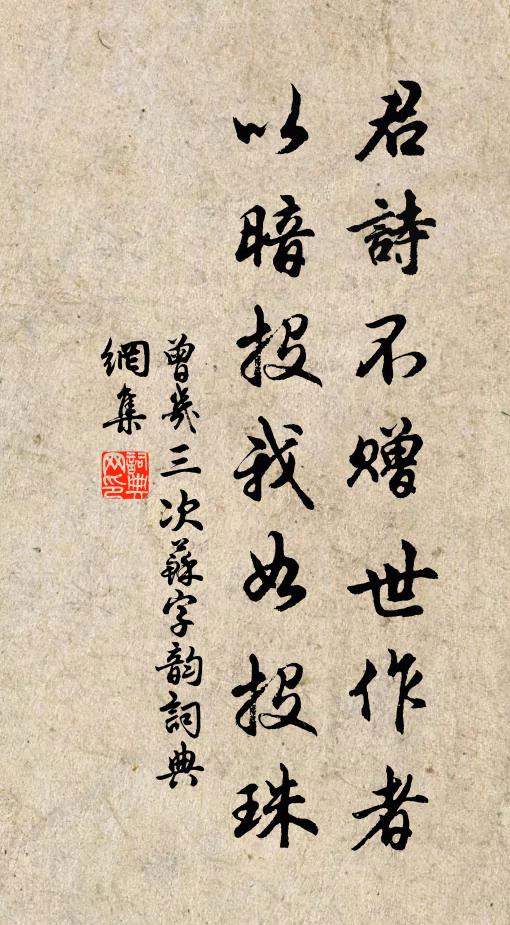 君詩不贈世作者
以暗投我如投珠
曾幾三次蘇字韵詞典
網集
詞典網印